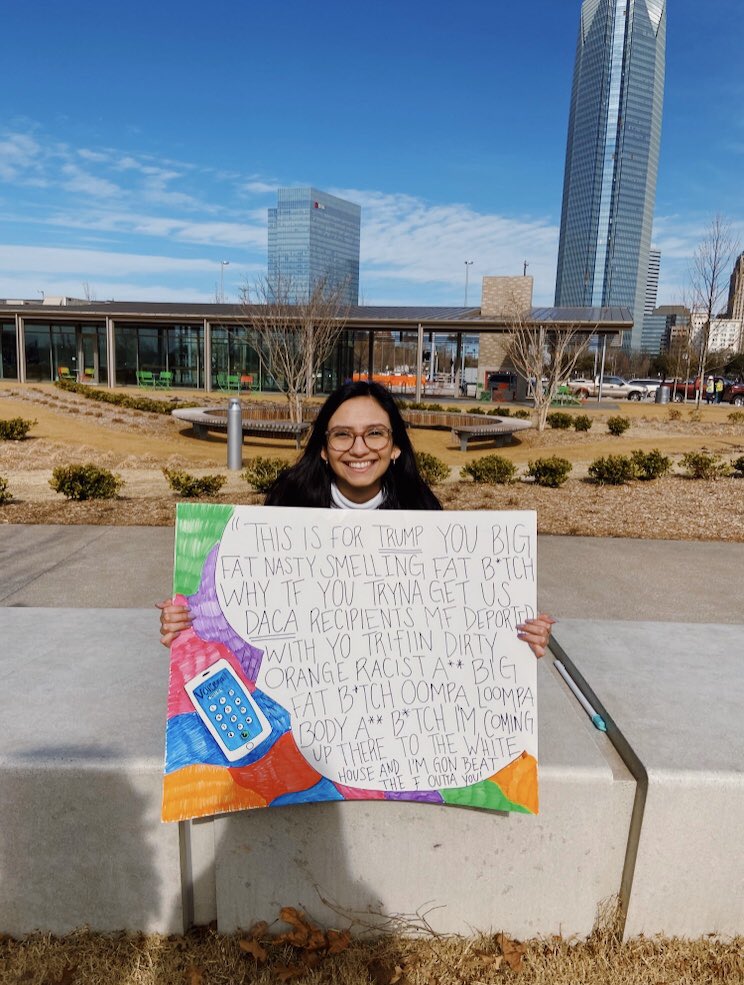 "THIS IS FOR TRUMP YOU BIG
FAT NASTY SMELLING FAT B*TCH
WHY TF YOU TRYNA GET US
DACA RECIPIENTS MF DEPORTED
WITH YO TRIFIIN DIRTY
ORANGE RACIST A** BIG
FAT B*TCH OOMPA LOOMPA
BODY A** B*TCH I'M COMING
UP THERE TO THE WHITE
HOUSE AND I'M GON BEAT
THE F OUTTA YOU